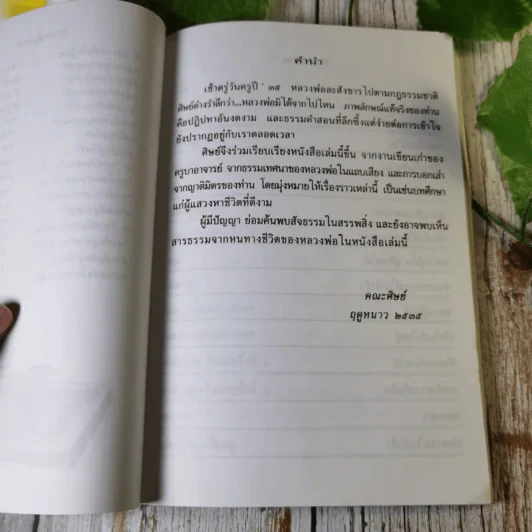 คำนำ
เช้าตรู่วันครูปี ๓๕ หลวงพ่อละสังขารไปตามกฎธรรมชาติ
ศิษย์ต่างรำลึกว่า...หลวงพ่อมิได้จากไปไหน ภาพลักษณ์แท้จริงของท่าน
คือปฏิปทาอันงดงาม และธรรมคำสอนที่ลึกซึ้งแต่ง่ายต่อการเข้าใจ
ยังปรากฏอยู่กับเราตลอดเวลา
ศิษย์จึงร่วมเรียบเรียงหนังสือเล่มนี้ขึ้น จากงานเขียนเก่าของ
ครูบาอาจารย์ จากธรรมเทศนาของหลวงพ่อในแถบเสียง และการบอกเล่า
จากญาติมิตรของท่าน โดยมุ่งหมายให้เรื่องราวเหล่านี้ เป็นเช่นบทศึกษา
แก่ผู้แสวงหาชีวิตที่ดีงาม
ผู้มีปัญญา ย่อมค้นพบสัจธรรมในสรรพสิ่ง และยังอาจพบเห็น
สารธรรมจากหนทางชีวิตของหลวงพ่อในหนังสือเล่มนี้
คณะศิษย์
ฤดูหนาว ๒๕๓๕